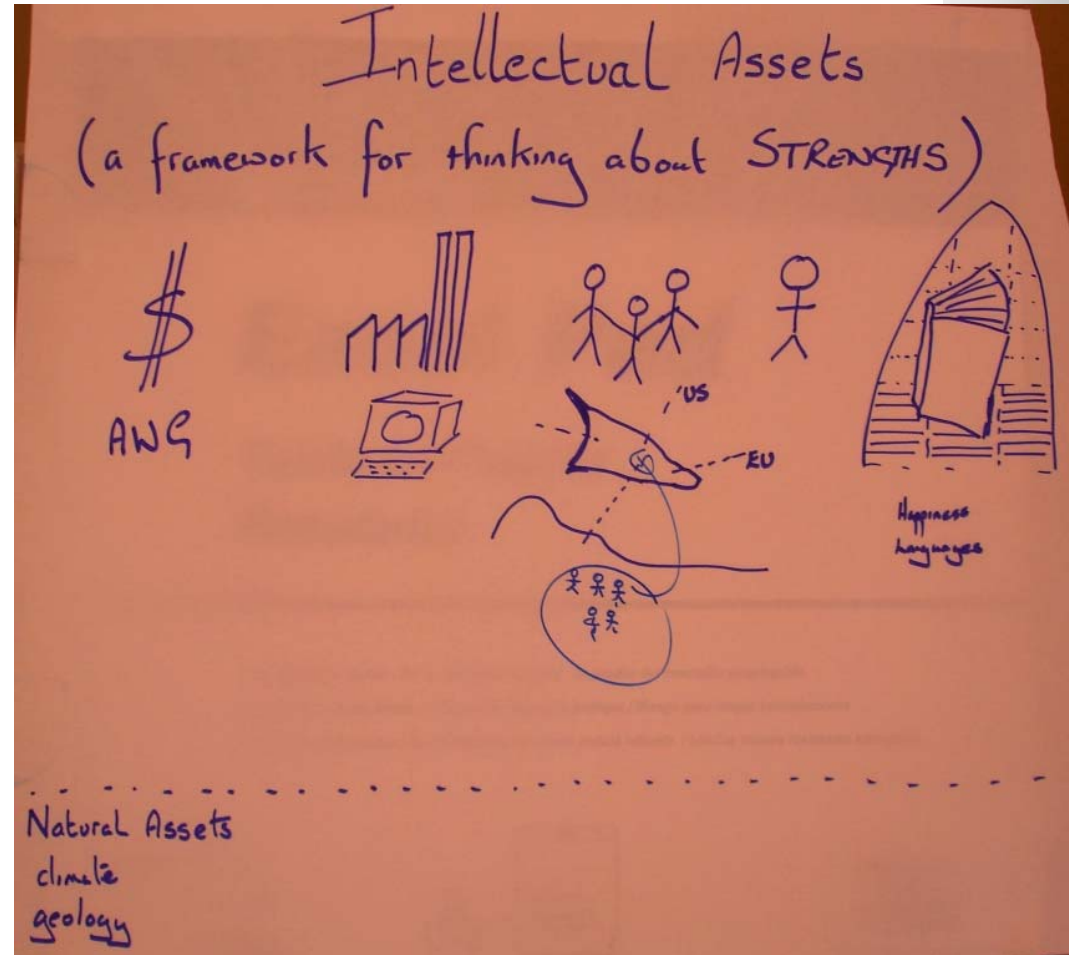 Intellectual Assets
(a framework for thinking about STRENGTHS)
$
AWG
US
EU
Happiness
Languages
Natural Assets
climate
geology